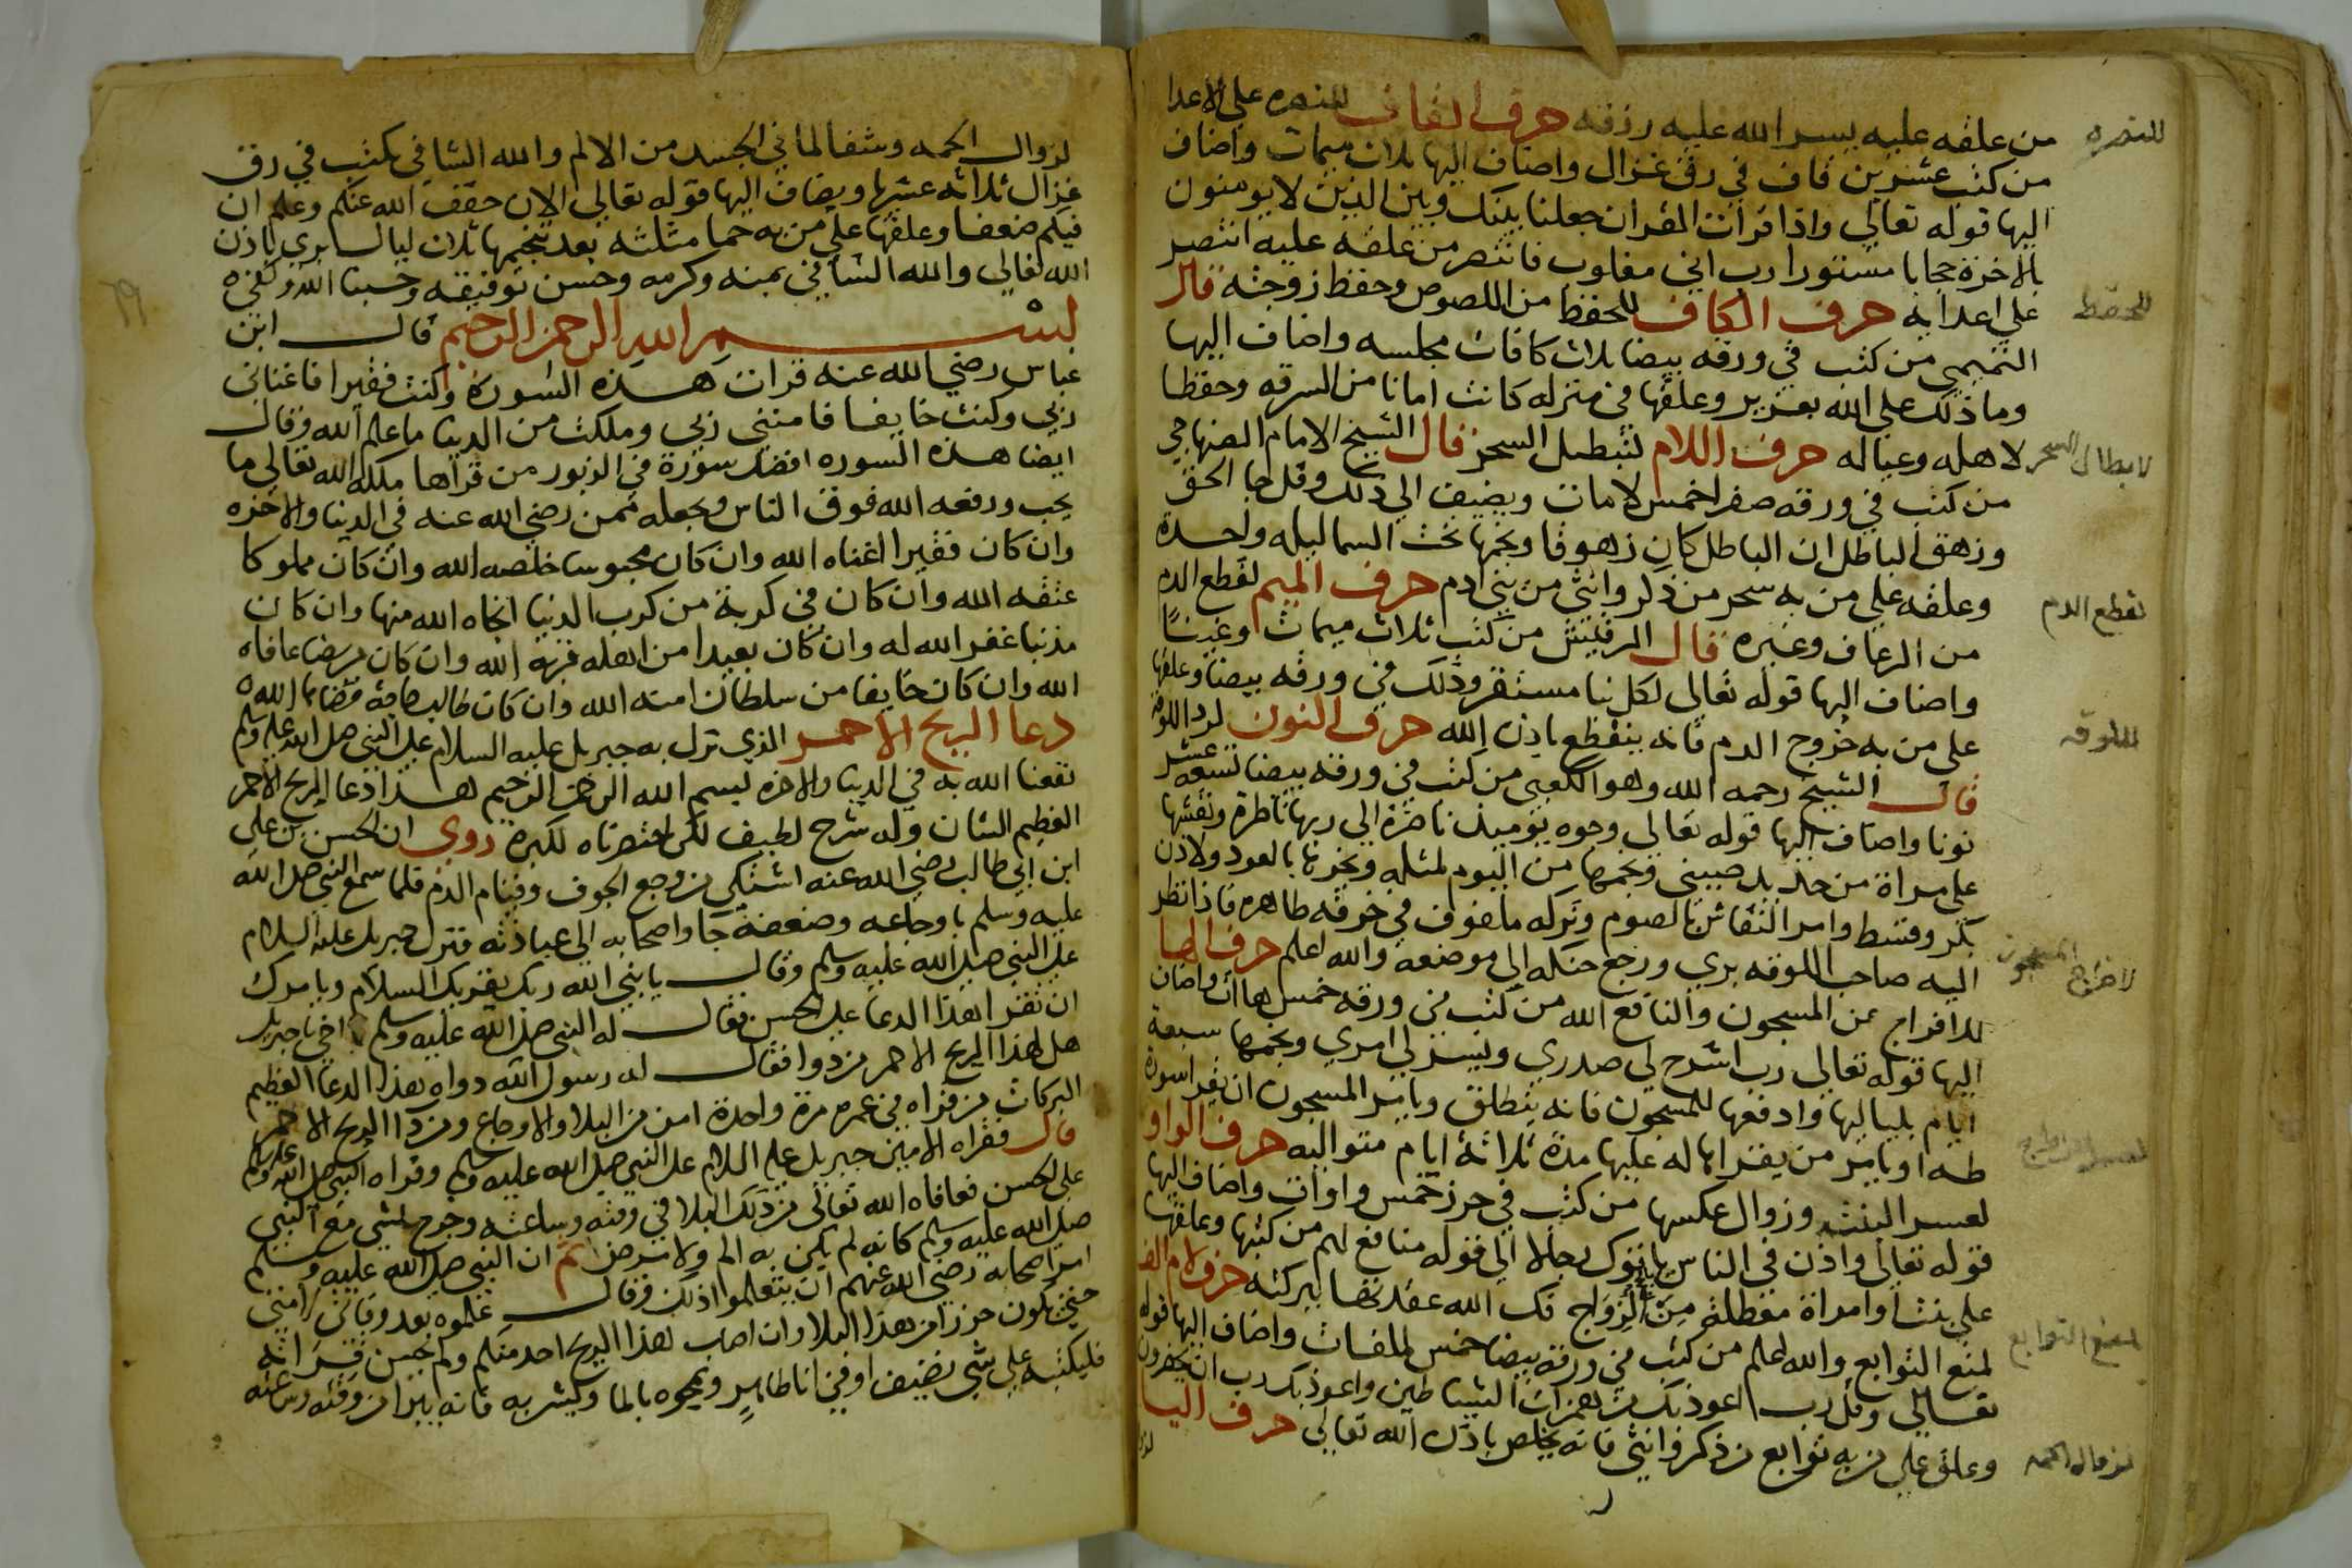 من علقه عليه يسر الله عليه رزقه حرف القاف للنصره علي الاعدا
من كتب عشرين قاف في رق غزال واضاف اليها ثلاث ميمات واضاف
اليها قوله تعالي واذا قرات القران جعلنا بينك وبين الذين لا يومنون
بالاخرة حجابا مستورا رب اني مغلوب فانتصر من علقه عليه انتصر
علي اعدايه حرف الكاف للحفظ من اللصوص وحفظ زوجته قال
التميمي من كتب في ورقه بيضا ثلاث كافات مجلسه واضاف اليها
وما ذلك علي الله بعزيز وعلقها في منزله كانت امانا من السرقه وحفظا
لاهله وعياله حرف اللام لتبطيل السحر قال الشيخ الامام الصنهاجي
من كتب في ورقه صفرا خمس لامات ويضيف الي ذلك وقل جا الحق
وزهق الباطل ان الباطل كان زهوقا ونجمها تحت السما ليله واحدة
وعلقه علي من به سحر من ذكر وانثي من بني ادم حرف الميم لقطع الدم
من الرعاف وغيره قال من كتب ثلاث ميمات وغينا
واضاف اليها قوله تعالي لكل نبا مستقر وذلك في ورقه بيضا وعلقها
علي من به خروج الدم فانه ينقطع باذن الله حرف النون لرد اللوقه
قال الشيخ رحمه الله وهو الكعبي من كتب في ورقه بيضا تسعه عشر
نونا واضاف اليها قوله تعالي وجوه يوميذ ناضرة الي ربها ناظرة ونقشها
علي مراة من حديد صيني ونجمها من اليوم لمثله وبخرها بالعود ولادن
بكر وقسط وامر النقاش بالصوم وتركه ملفوف في خرقه طاهره فاذا نظر
اليه صاحب اللوقه بري ورجع حنكه الي موضعه والله اعلم حرف الها
للافراج عن المسجون والنافع الله من كتب في ورقه خمس هاات واضاف
اليها قوله تعالي رب اشرح لي صدري ويسر لي امري ونجمها سبعة
ايام بلياليها وادفعها للمسجون فانه ينطلق ويامر المسجون ان يقرا سورة
طه او يامر من يقراها له عليها مدة ثلاثة ايام متواليه حرف الواو
لعسر البنت وزوال عكسها من كتب في حرز خمس واوات واضاف اليها
قوله تعالي واذن في الناس بالحج ياتوك رجالا الي قوله منافع لهم من كتبها وعلقها
علي بنت او امراة معطلة من الزواج فك الله عقدتها ببركته حرف لام الف
لمنع التوابع والله اعلم من كتب في ورقه بيضا خمس لامالفات واضاف اليها قوله
تعالي وقل رب اعوذ بك من همزات الشياطين واعوذ بك رب ان يحضرون
وعلق علي من به توابع من ذكر وانثي فانه يخلص باذن الله تعالي حرف اليا
للنصره
للحفظ
لابطال السحر
لقطع الدم
للوقه
لاخراج المسجون
لمنع التوابع
لزوال الحمه
لزوال الحمه وشفا لما في الجسد من الالم والله الشافي يكتب في رق
غزال ثلاثه عشر يا ويضاف اليها قوله تعالي الان خفف الله عنكم وعلم ان
فيكم ضعفا وعلقها علي من به حما مثلثه بعد تنجيمها ثلاث ليال يبري باذن
الله تعالي والله الشافي بمنه وكرمه وحسن توفيقه وحسبنا الله وكفي
بسم الله الرحمن الرحيم قال ابن
عباس رضي الله عنه قرات هذه السورة وكنت فقيرا فاغناني
ربي وكنت خايفا فامنني ربي وملكت من الدنيا ما علم الله وقال
ايضا هذه السوره افضل سورة في الزبور من قراها ملكه الله تعالي ما
يحب ورفعه الله فوق الناس ويجعله ممن رضي الله عنه في الدنيا والاخره
وان كان فقيرا اغناه الله وان كان محبوسا خلصه الله وان كان مملوكا
عتقه الله وان كان في كربة من كرب الدنيا انجاه الله منها وان كان
مذنبا غفر الله له وان كان بعيدا من اهله قربه الله وان كان مريضا عافاه
الله وان كان خايفا من سلطان امنه الله وان كان طالب حاجة قضاها الله
دعا الريح الاحمر الذي نزل به جبريل عليه السلام علي النبي صلي الله عليه وسلم
نفعنا الله به في الدنيا والاخره بسم الله الرحمن الرحيم هذا دعا الريح الاحمر
العظيم الشان وله شرح لطيف لكن اختصرناه لكبره روي ان الحسن بن علي
ابن ابي طالب رضي الله عنه اشتكي من وجع الجوف وقيام الدم فلما سمع النبي صلي الله
عليه وسلم باوجاعه وضعفه جا واصحابه الي عيادته فنزل جبريل عليه السلام
علي النبي صلي الله عليه وسلم وقال يا نبي الله ربك يقريك السلام ويامرك
ان تقرا هذا الدعا علي الحسن فقال له النبي صلي الله عليه وسلم يا اخي يا جبريل
هل لهذا الريح الاحمر من دوا فقال له رسول الله دواه بهذا الدعا العظيم
البركات من قراه في عمره مرة واحدة امن من البلا والاوجاع ومن دا الريح الاحمر
قال فقراه الامين جبريل عليه السلام علي النبي صلي الله عليه وسلم وقراه النبي صلي الله عليه وسلم
علي الحسن فعافاه الله تعالي من ذلك البلا في وقته وساعته وخرج يمشي مع النبي
صلي الله عليه وسلم كانه لم يكن به الم ولا مرض ثم ان النبي صلي الله عليه وسلم
امر اصحابه رضي الله عنهم ان يتعلموا ذلك وقال علموه بعد وفاتي لامتي
حتي يكون حرزا من هذا البلا وان اصاب هذا الريح احد منكم ولم يحسن قراته
فليكتبه علي شي نضيف او في انا طاهر ويمحوه بالما ويشربه فانه يبرا من وقته وساعته